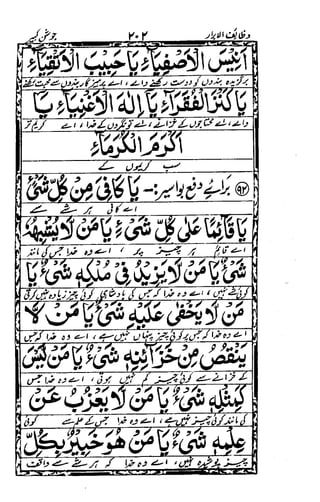 وظائف الابرار ۲۰۲ جوشن کبیر
اَنِیْسَ الْاَصْفِیَآءِ یَا حَبِیْبَ الْاَتْقِیَآءِ
برگزیدہ بندوں کو دوست رکھنے والے، اے پرہیزگار بندوں سے محبت رکھنے
یَا کَنْزَ الْفُقَرَآءِ یَا اِلٰهَ الْاَغْنِیَآءِ یَا
والے، اے محتاجوں کے خزانے، اے تونگروں کے خدا، اے کریم تر
اَکْرَمَ الْکُرَمَآءِ
سب کریموں کے
۹۲ برائے دفع بواسیر:- یَا کَافِیَ مِنْ کُلِّ شَیْءٍ
اے کافی ہر شے کے
یَا قَآئِمًا عَلٰی کُلِّ شَیْءٍ یَا مَنْ لَا یُشْبِهُهٗ
اے قائم ہر چیز پر، اے وہ خدا جس کی مانند
شَیْءٌ یَا مَنْ لَا یَزِیْدُ فِیْ مُلْکِهٖ شَیْءٌ یَا
کوئی شے نہیں، اے وہ خدا کہ جس کی بادشاہی کوئی چیز زیادہ نہیں کرتی
مَنْ لَا یَخْفٰی عَلَیْهِ شَیْءٌ یَا مَنْ لَا
اے وہ خدا کہ جس پر کوئی چیز پنہاں نہیں ہے، اے وہ خدا کہ جس
یَنْقُصُ مِنْ خَزَآئِنِهٖ شَیْءٌ یَا مَنْ لَیْسَ
کے خزانے سے کوئی چیز کم نہیں ہوتی، اے وہ خدا جس
کَمِثْلِهٖ شَیْءٌ یَا مَنْ لَا یَعْزُبُ عَنْ
کی مانند کوئی چیز نہیں ہے، اے وہ خدا کہ جس کے علم سے کوئی
عِلْمِهٖ شَیْءٌ یَا مَنْ هُوَ خَبِیْرٌ بِکُلِّ
چیز پوشیدہ نہیں، اے وہ خدا کہ ہر شے سے واقف